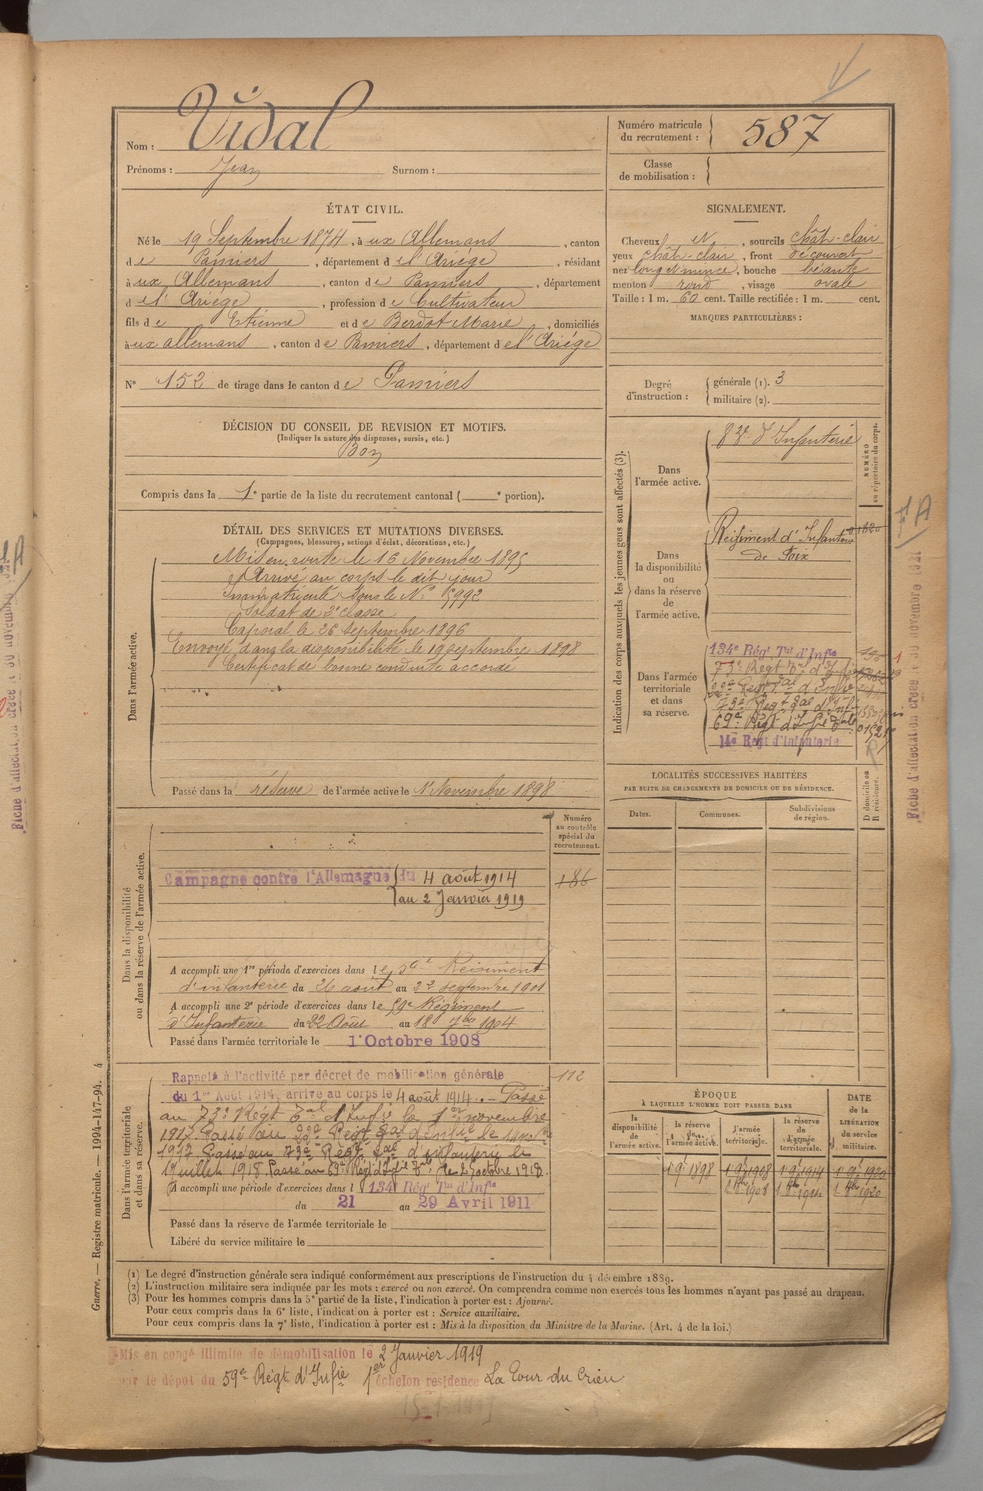 Nom : Vidal
Prénoms : Jean Surnom :
Numéro matricule du recrutement : 587
Classe de mobilisation :
ÉTAT CIVIL.
Né le 19 Septembre 1874, à ux Allemans, canton
d e Pamiers, département d e l'Ariège, résidant
à ux Allemans, canton d e Pamiers, département
d e l'Ariège, profession d e Cultivateur
fils d e Etienne et d e Berdot Marie, domiciliés
à ux allemans, canton d e Pamiers, département d e l'Ariège
N° 152 de tirage dans le canton d e Pamiers
SIGNALEMENT.
Cheveux et, sourcils chât-clair
yeux chât-clair, front découvert
nez long et mince, bouche béante
menton rond, visage ovale
Taille : 1 m. 60 cent. Taille rectifiée : 1 m. cent.
MARQUES PARTICULIÈRES :
Degré d'instruction : générale (1). 3
militaire (2).
DÉCISION DU CONSEIL DE REVISION ET MOTIFS.
(Indiquer la nature des dispenses, sursis, etc.)
Bon
Compris dans la 1e partie de la liste du recrutement cantonal ( e portion).
DÉTAIL DES SERVICES ET MUTATIONS DIVERSES.
(Campagnes, blessures, actions d'éclat, décorations, etc.)
Dans l'armée active.
Mis en route le 16 Novembre 1895
Arrivé au corps le dit jour
Immatriculé sous le N° 5992
Soldat de 2e classe
Caporal le 26 septembre 1896
Envoyé dans la disponibilité le 19 septembre 1898
Certificat de bonne conduite accordé
Passé dans la réserve de l'armée active le 1er Novembre 1898
Indication des corps auxquels les jeunes gens sont affectés (3).
NUMÉRO au répertoire du corps.
Dans l'armée active.
d'Infanterie
Dans la disponibilité ou dans la réserve de l'armée active.
Régiment d'Infanterie
de Foix
Dans l'armée territoriale et dans sa réserve.
134e Rég' Tal d'Infie
73e Régt Tal d'Infie
73e Régt Tal d'Inf
62e Régt d'Infie Tale
14e Régt d'Infanterie
LOCALITÉS SUCCESSIVES HABITÉES
PAR SUITE DE CHANGEMENTS DE DOMICILE OU DE RÉSIDENCE.
Dates. Communes. Subdivisions de région. D domicile ou R résidence.
Dans la disponibilité ou dans la réserve de l'armée active.
Numéro au contrôle spécial du recrutement.
Campagne contre l'Allemagne du 4 août 1914
au 2 Janvier 1919
186
A accompli une 1re période d'exercices dans l e Régiment
d'infanterie du 26 août au 22 septembre 1901
A accompli une 2e période d'exercices dans l e 59e Régiment
d'Infanterie du 22 Août au 18 7bre 1904
Passé dans l'armée territoriale le 1er Octobre 1908
Dans l'armée territoriale et dans sa réserve.
112
Rappelé à l'activité par décret de mobilisation générale
du 1er Août 1914, arrivé au corps le 4 août 1914. Passé
au 73e Régt Tal d'Infie le 1er novembre
1917 Passé au
1917 Passé au 73e Régt Tal d'infanterie le
1er juillet 1918 Passé au octobre 1918
A accompli une période d'exercices dans l 134e Rég' Tal d'Infie
du 21 au 29 Avril 1911
Passé dans la réserve de l'armée territoriale le
Libéré du service militaire le
ÉPOQUE
À LAQUELLE L'HOMME DOIT PASSER DANS
la disponibilité de l'armée active. la réserve de l'armée active. l'armée territoriale. la réserve de l'armée territoriale.
DATE de la LIBÉRATION du service militaire.
1 9e 1898 1 9e 1908 1 9e 1914 1 9e 1920
1 8bre 1908 1 8bre 1914 1 8bre 1920
(1) Le degré d'instruction générale sera indiqué conformément aux prescriptions de l'instruction du 4 décembre 1889.
(2) L'instruction militaire sera indiquée par les mots : exercé ou non exercé. On comprendra comme non exercés tous les hommes n'ayant pas passé au drapeau.
(3) Pour les hommes compris dans la 5e partie de la liste, l'indication à porter est : Ajourné.
Pour ceux compris dans la 6e liste, l'indication à porter est : Service auxiliaire.
Pour ceux compris dans la 7e liste, l'indication à porter est : Mis à la disposition du Ministre de la Marine. (Art. 4 de la loi.)
Guerre. — Registre matricule. — 1994-147-94. 4
Mis en congé illimité de démobilisation le 2 Janvier 1919
par le dépôt du 59e Régt d'Infie 1er échelon résidence La Tour du Crieu
Fiche d'affectation créée le 30 novembre 1921
Fiche d'affectation créée le 30 novembre